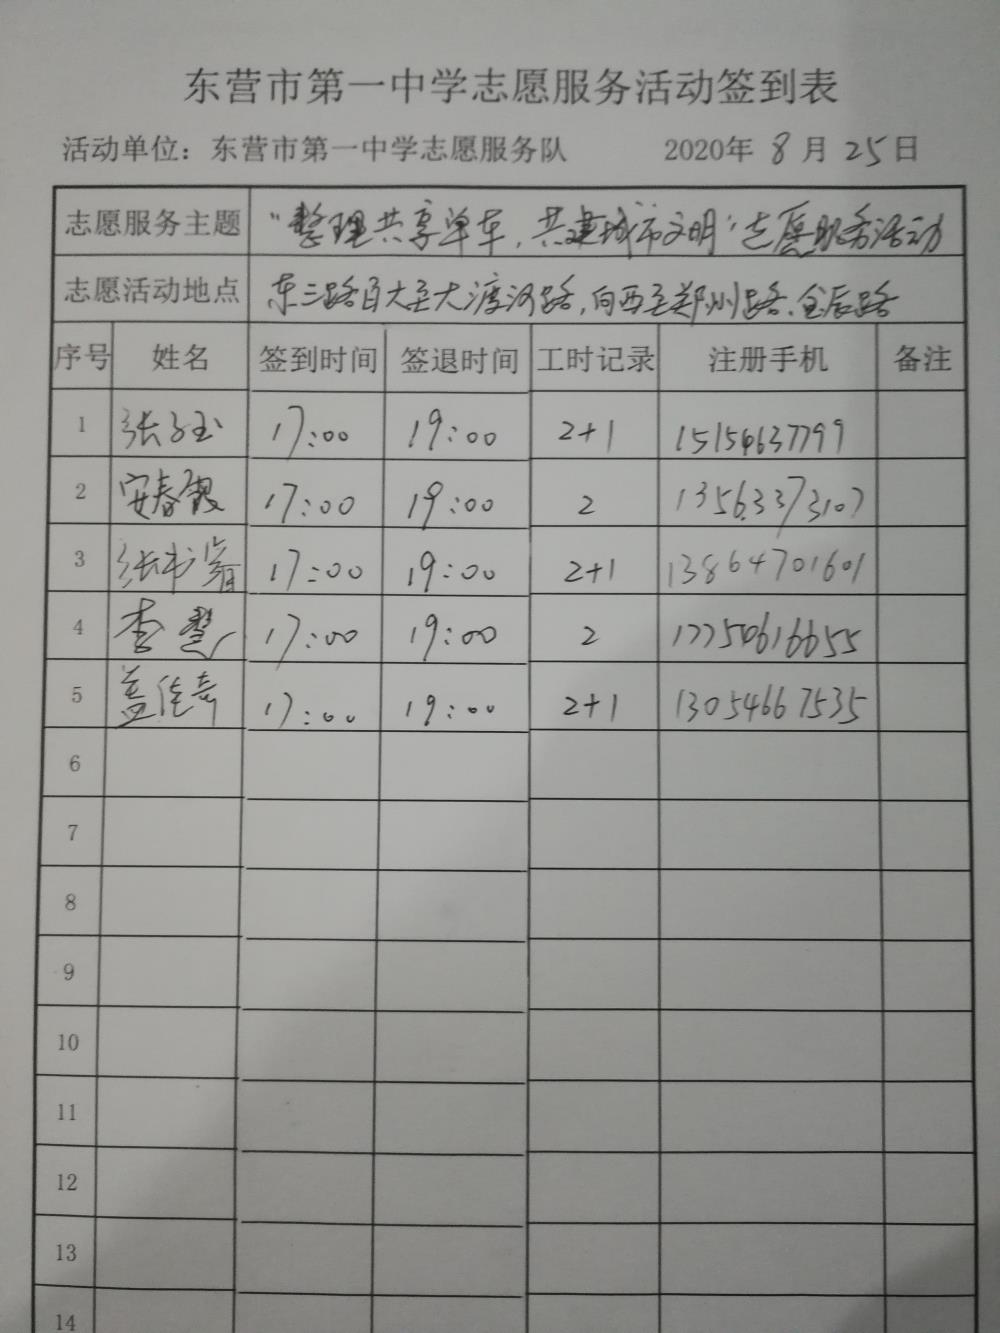 东营市第一中学志愿服务活动签到表
活动单位：东营市第一中学志愿服务队 2020年 8 月 25 日
志愿服务主题 “整理共享单车，共建城市文明”志愿服务活动
志愿活动地点 东三路百大至大渡河路，向西至郑州路、金辰路
序号 姓名 签到时间 签退时间 工时记录 注册手机 备注
1 张子玉 17:00 19:00 2+1 15154637799
2 安春银 17:00 19:00 2 13563373107
3 张书 17:00 19:00 2+1 13864701601
4 李慧 17:00 19:00 2 17750616655
5 盖佳奇 17:00 19:00 2+1 13054667535
6
7
8
9
10
11
12
13
14